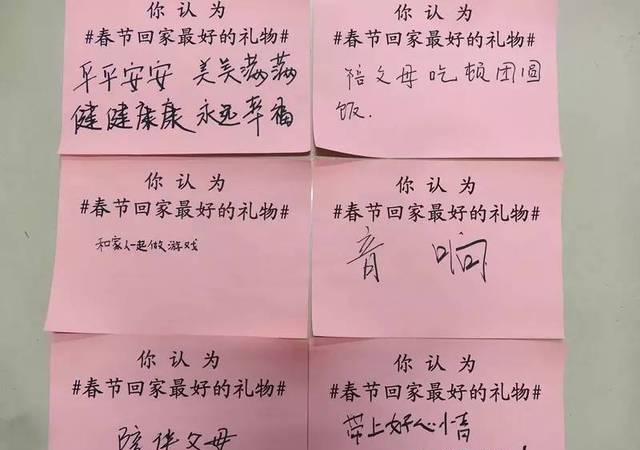 你认为
#春节回家最好的礼物#
平平安安 美美满满
健健康康 永远幸福
你认为
#春节回家最好的礼物#
陪父母吃顿团圆
饭.
你认为
#春节回家最好的礼物#
和家人一起做游戏
你认为
#春节回家最好的礼物#
音响
你认为
#春节回家最好的礼物#
陪伴父母
你认为
#春节回家最好的礼物#
带上好心情